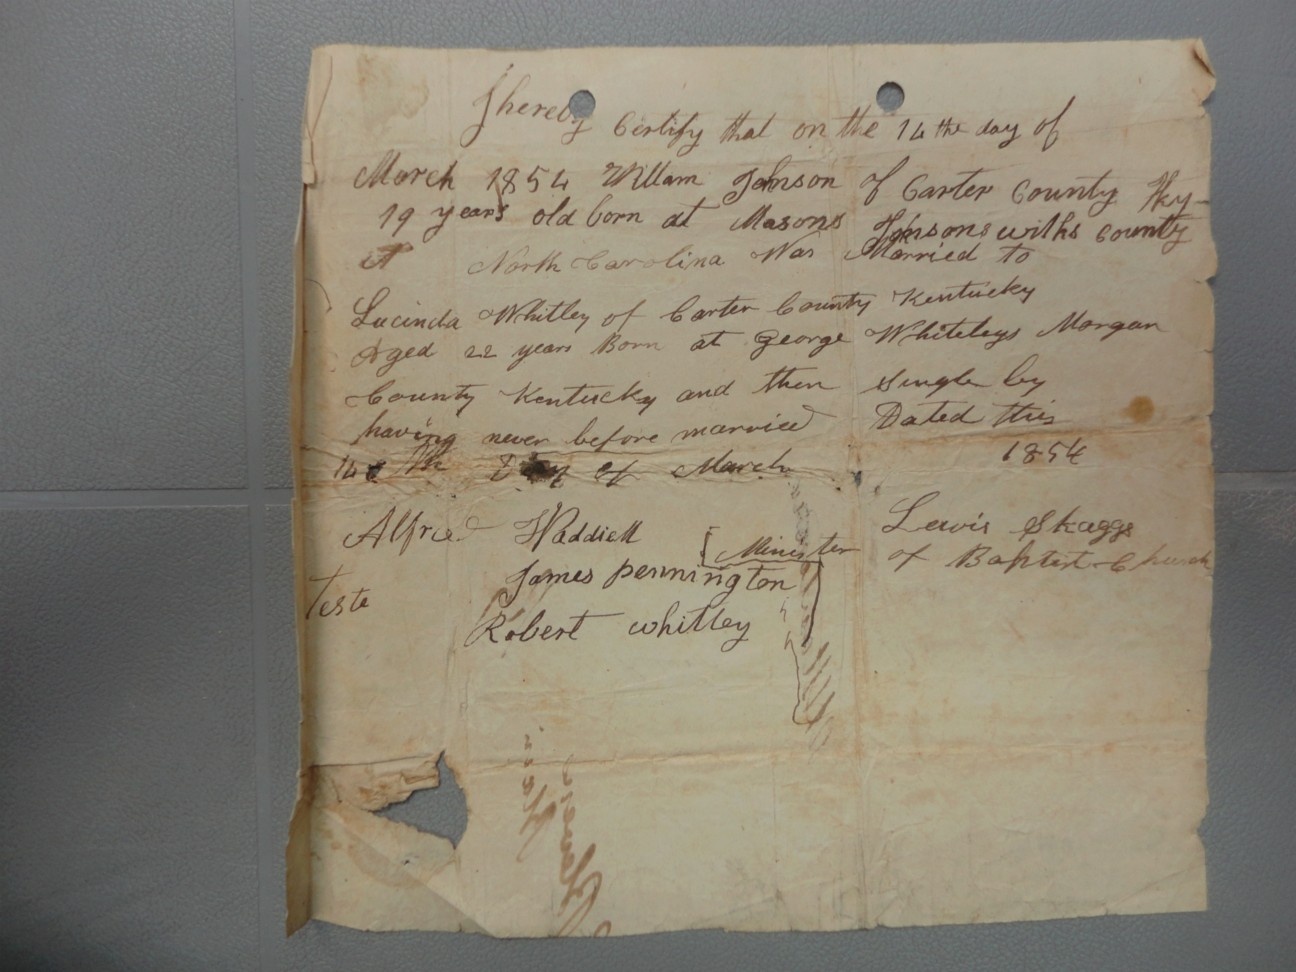 I hereby Certify that on the 14 the day of
March 1854 Willam Johnson of Carter County Ky
19 years old born at Masons Johnsons wilks County
North Carolina Was Married to
Lucinda Whitley of Carter County Kentucky
Aged 22 years Born at George Whiteleys Morgan
County Kentucky and then single by
having never before married Dated this
14 th Day of March 1854
Alfred Waddell [Minister Lewis Skaggs
of Baptist Church
James pennington
Teste
Robert whitley